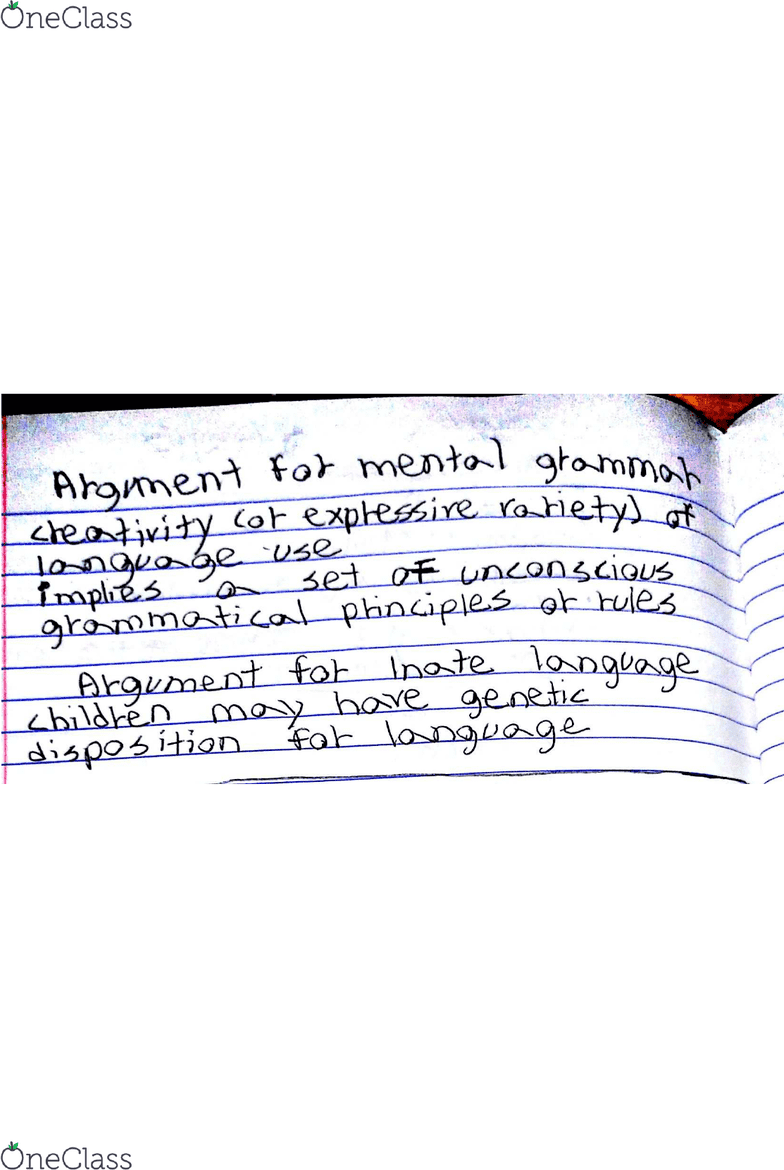 OneClass
Argument for mental grammar
creativity (or expressive variety) of
language use
implies a set of unconscious
grammatical principles or rules
Argument for Inate language
children may have genetic
disposition for language
OneClass